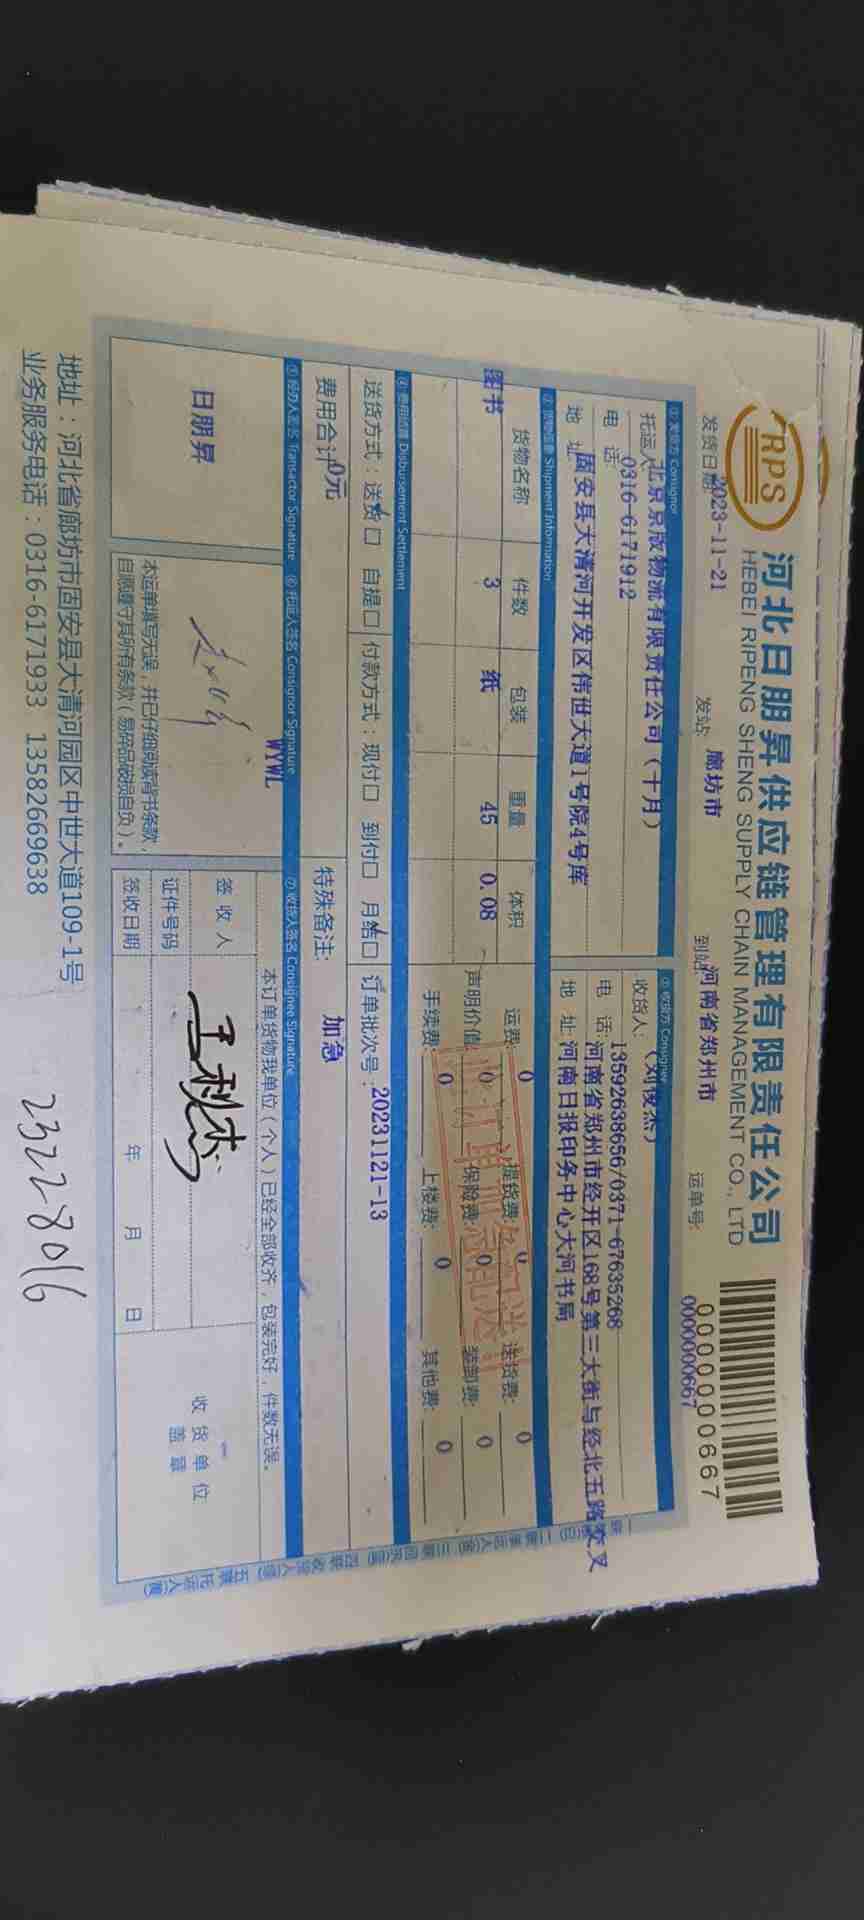 RPS
河北日朋昇供应链管理有限责任公司
HEBEI RIPENG SHENG SUPPLY CHAIN MANAGEMENT CO., LTD
0000000667
发货日期: 2023-11-21 发站: 廊坊市 到站: 河南省郑州市 运单号: 0000000667
①发货方 Consignor
托运人: 北京京版物流有限责任公司（十月）
电 话: 0316-6171912
地 址: 固安县大清河开发区伟世大道1号院4号库
②收货方 Consignee
收货人: （刘俊杰）
电 话: 13592638656/0371-67635268
地 址: 河南省郑州市经开区168号第三大街与经北五路交叉
河南日报印务中心大河书局
③货物信息 Shipment Information
货物名称 件数 包装 重量 体积
图书 3 纸 45 0.08
运费: 0 提货费: 0 送货费: 0
声明价值: 0 保险费: 0 装卸费: 0
手续费: 0 上楼费: 0 其他费: 0
④费用结算 Disbursement Settlement
送货方式：送货□ 自提□ 付款方式：现付□ 到付□ 月结□ 订单批次号: 20231121-13
费用合计: 0元 特殊备注: 加急
⑤经办人签名 Transactor Signature ⑥托运人签名 Consignor Signature ⑦收货人签名 Consignee Signature
日朋昇
WYWL
本运单填写无误，并已仔细阅读背书条款，
自愿遵守其所有条款（易碎品破损自负）。
本订单货物我单位（个人）已经全部收齐，包装完好，件数无误。
签 收 人
证件号码
签收日期 年 月 日
收货单位
盖章
地址：河北省廊坊市固安县大清河园区中世大道109-1号
业务服务电话：0316-6171933 13582669638
23228016